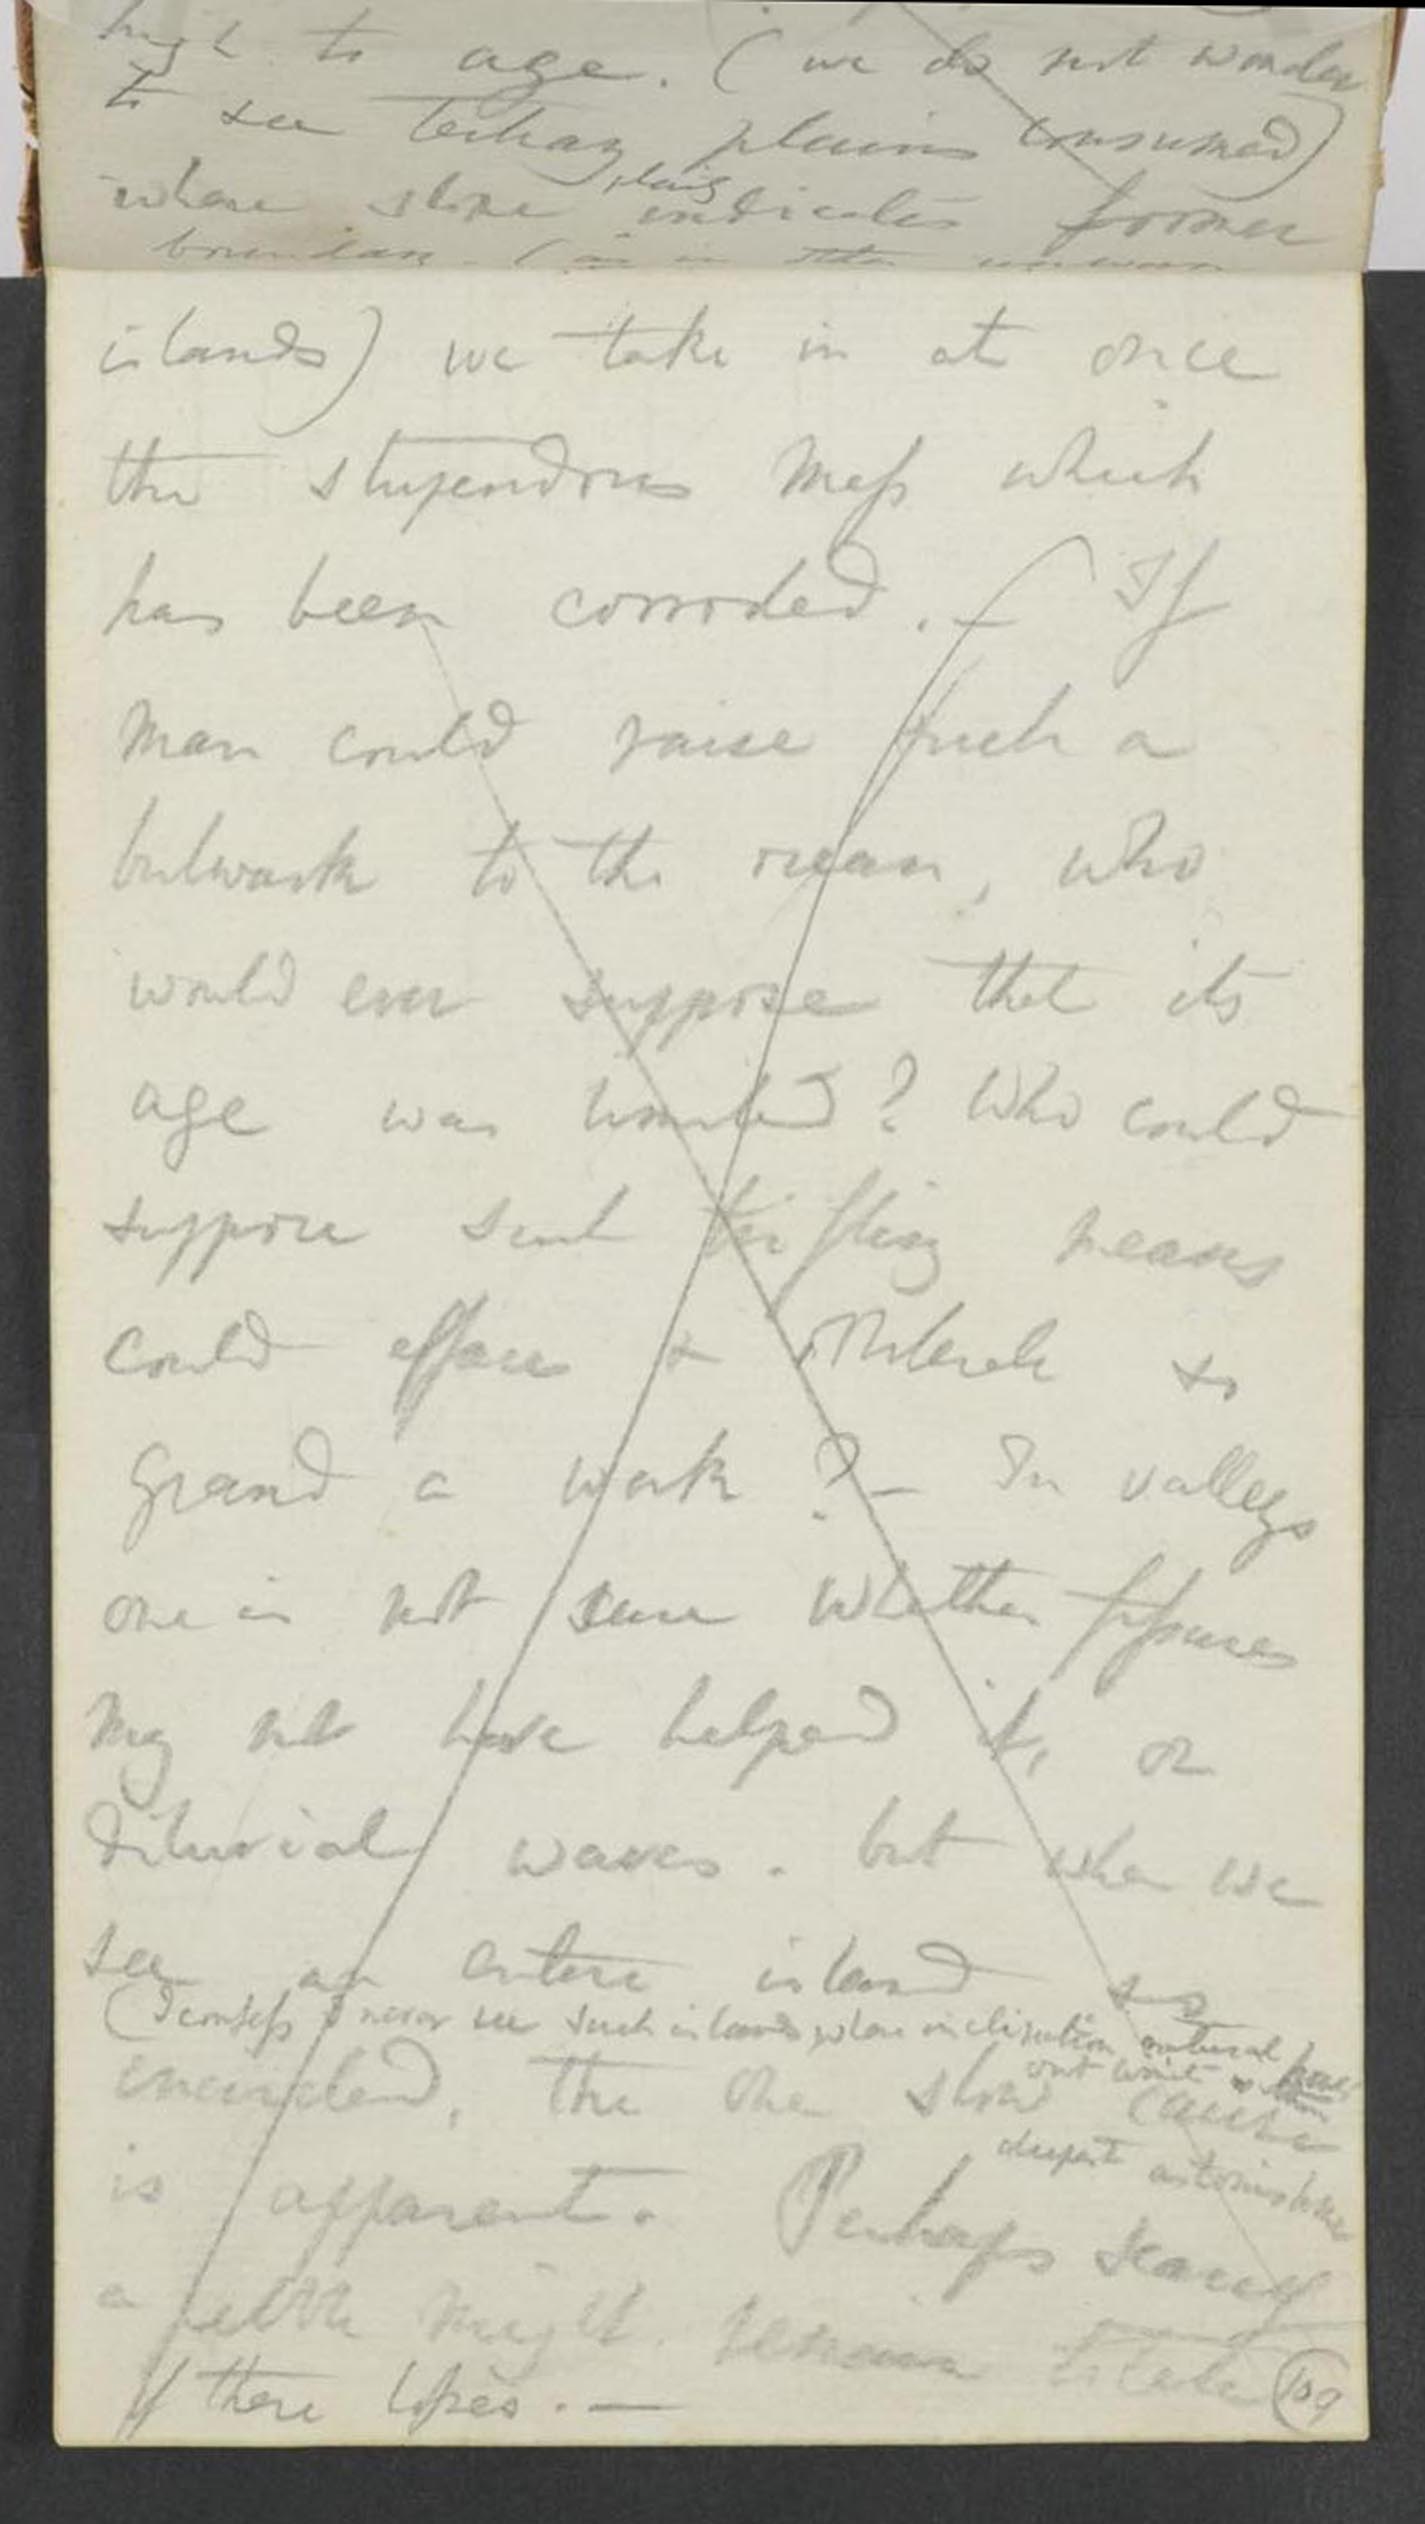 high to age. (we do not wonder
to see tertiary plains consumed)
where slope plainly indicates former
boundary. (as in the
islands) we take in at once
the stupendous mass which
has been corroded. — If
man could raise such a
bulwark to the ocean, who
would ever suppose that its
age was limited? Who could
suppose such trifling means
could efface & obliterate so
grand a work? — In valleys
one is not sure whether fissures
may not have helped it, or
diluvial waves. but when we
see an entire island so
(I confess I never see such islands whose inclination natural
out without
encircled, the one slow cause
deepest astonishment
is apparent. Perhaps scarcely
a relic might remain
of there losses. —
109